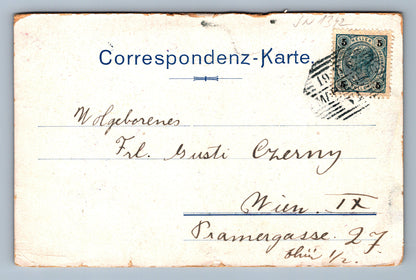 JN 1342
Correspondenz-Karte.
5 5
Wolgeborenes
Frl. Gusti Czerny
Wien. IX
Pramergasse. 27
Thür 1/2.